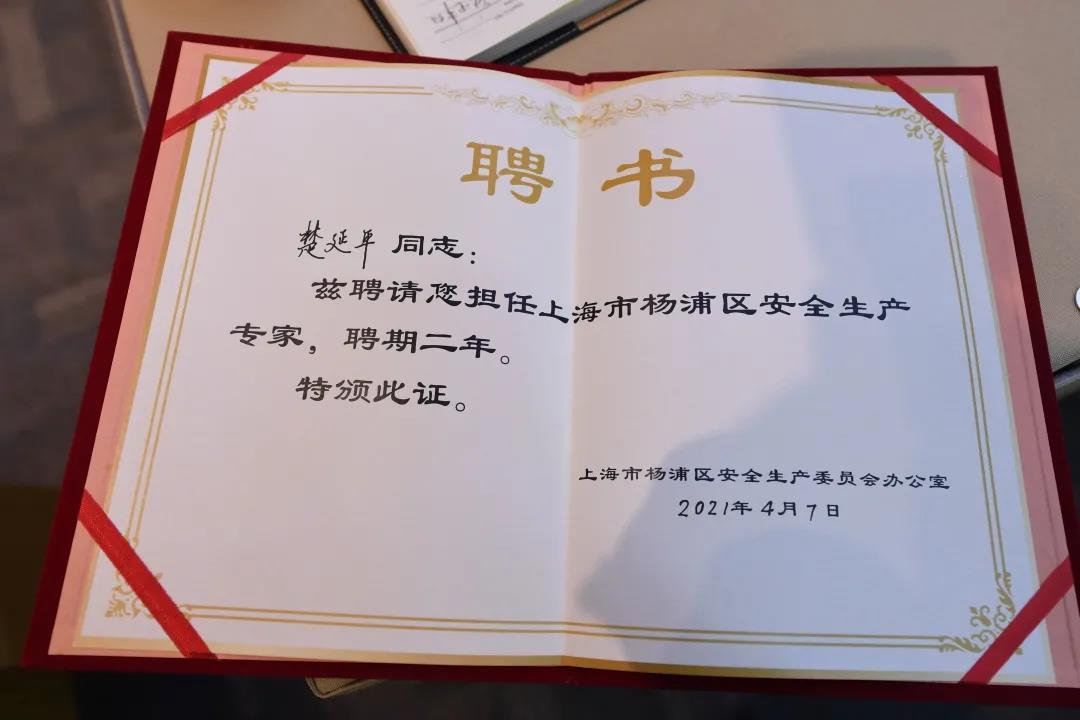 聘书
楚延平 同志：
兹聘请您担任上海市杨浦区安全生产
专家，聘期二年。
特颁此证。
上海市杨浦区安全生产委员会办公室
2021年4月7日